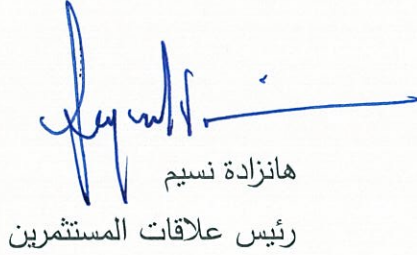 هانزادة نسيم
رئيس علاقات المستثمرين